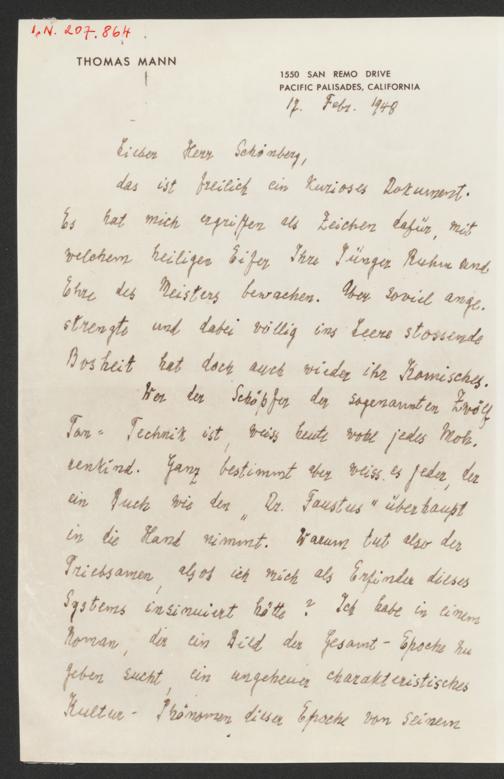 I.N. 207.864
THOMAS MANN
1550 SAN REMO DRIVE
PACIFIC PALISADES, CALIFORNIA
17. Febr. 1948
Lieber Herr Schönberg,
das ist freilich ein kurioses Dokument.
Es hat mich ergriffen als Zeichen dafür, mit
welchem heiligen Eifer Ihre Jünger Ruhm und
Ehre des Meisters bewachen. Aber soviel ange-
strengte und dabei völlig ins Leere stossende
Bosheit hat doch auch wieder ihr Komisches.
Wer der Schöpfer der sogenannten Zwölf-
Ton-Technik ist, weiss heute wohl jedes Moh-
renkind. Ganz bestimmt aber weiss es jeder, der
ein Buch wie den „Dr. Faustus" überhaupt
in die Hand nimmt. Warum tut also der
als ob ich mich als Erfinder dieses
Systems insinuiert hätte? Ich habe in einem
Roman, der ein Bild der Gesamt-Epoche zu
geben sucht, ein ungeheuer charakteristisches
Kultur-Phänomen dieser Epoche von seinem